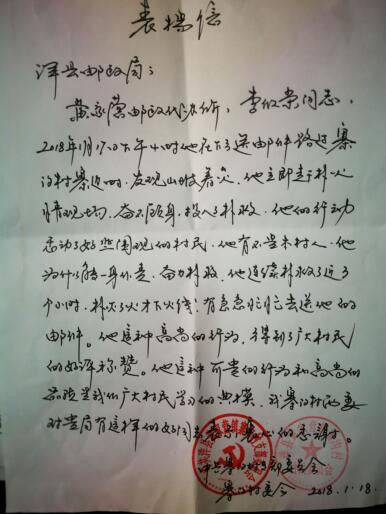 表扬信
洋县邮政局:
黄家营邮政代办所,李俊荣同志,
2018年1月17日下午4小时他在下了送邮件路过寨
沟村寨边时,发现山坡着火,他立即赶扑火
情现场,奋不顾身,投入了扑救,他的行动
感动了好些围观的村民,他有不是本村人,他
为什么能一身作责,奋力扑救,他连续扑救了近3
个小时,扑灭了火才下火线;有急急忙忙去送他的
邮件。他这种高尚的行为,得到了广大村民
的好评称赞。他这种可贵的行为和高尚的
品质是我们广大村民学习的典模,我寨沟村两委
对贵局有这样的好同志表示衷心的感谢!。
中共寨沟村支部委员会
寨沟村委会 2018.1.18.